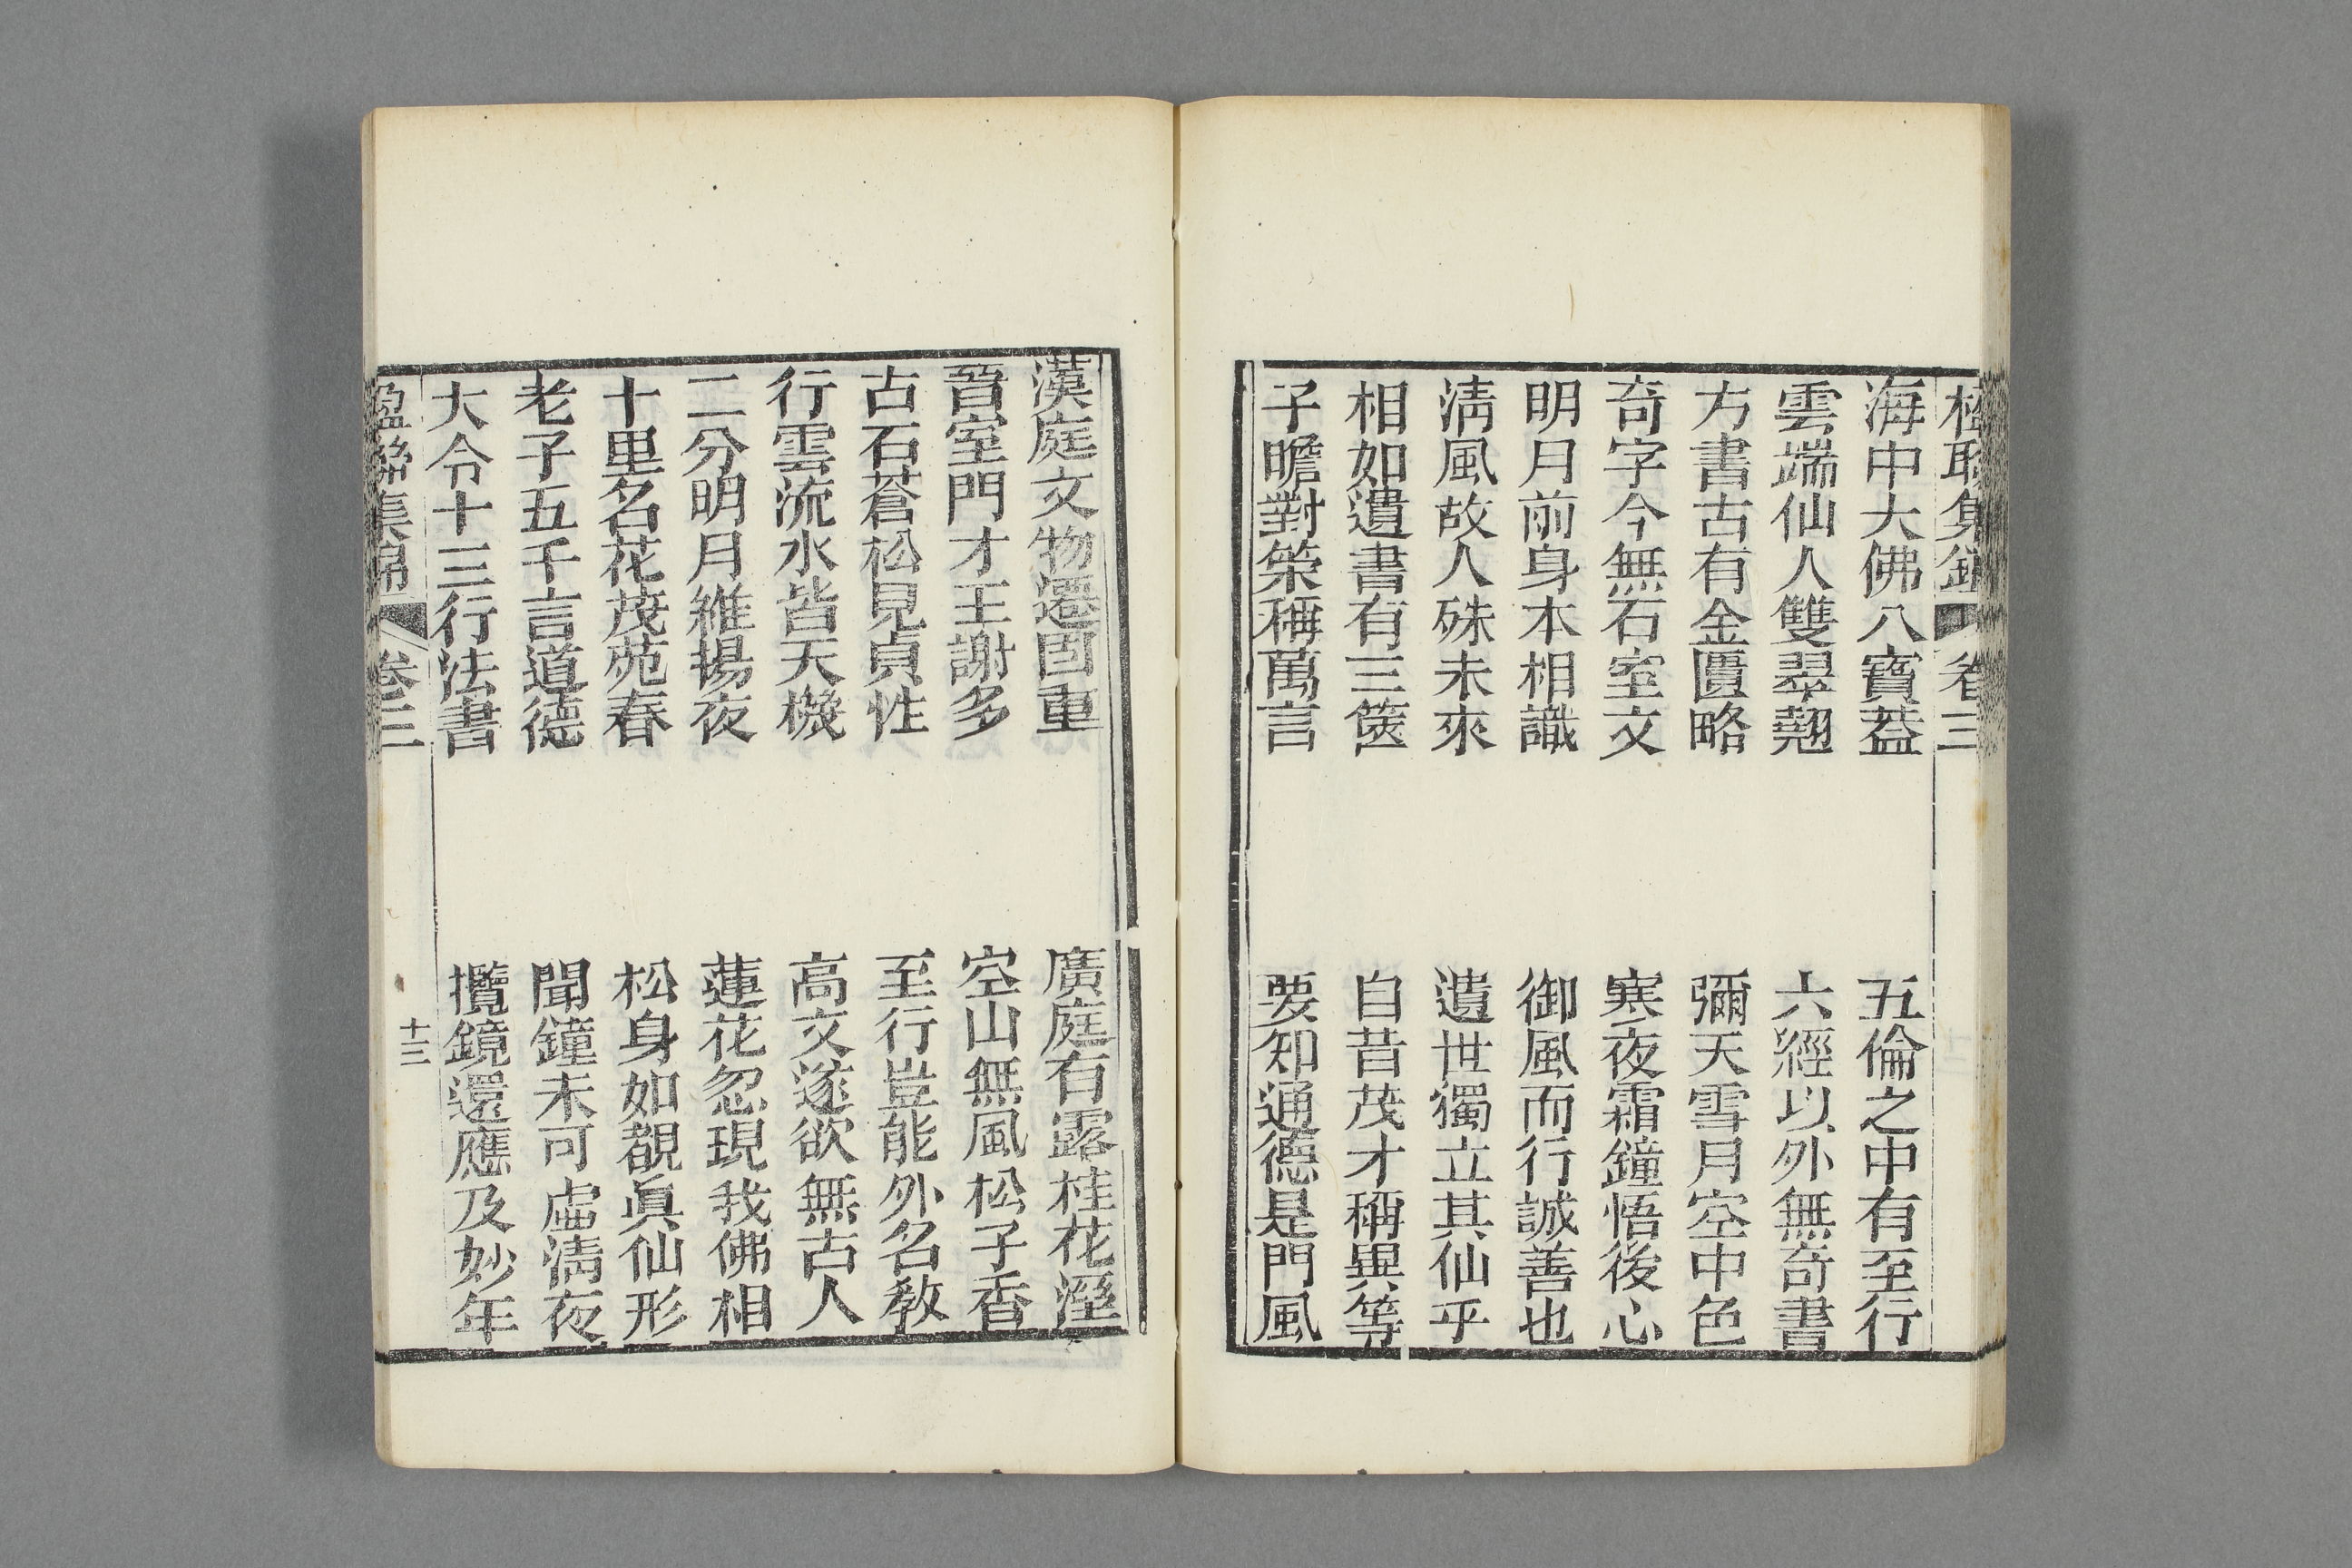 海中大佛八寶葢　五倫之中有至行
雲端仙人雙翠翹　六經以外無奇書
方書古有金匱略　彌天雪月空中色
奇字今無石室文　寒夜霜鐘悟後心
明月前身本相識　御風而行誠善也
淸風故人殊未來　遺世獨立其仙乎
相如遺書有三篋　自昔茂才稱異等
子瞻對策稱萬言　要知通德是門風
漢庭文物遷固重　廣庭有露桂花溼
晉室門才王謝多　空山無風松子香
古石蒼松見貞性　至行豈能外名敎
行雲流水皆天機　高文遂欲無古人
二分明月維揚夜　蓮花忽現我佛相
十里名花茂苑春　松身如覩眞仙形
老子五千言道德　聞鐘未可虛淸夜
大令十三行法書　攬鏡還應及妙年
楹聯集錦　卷三　十三